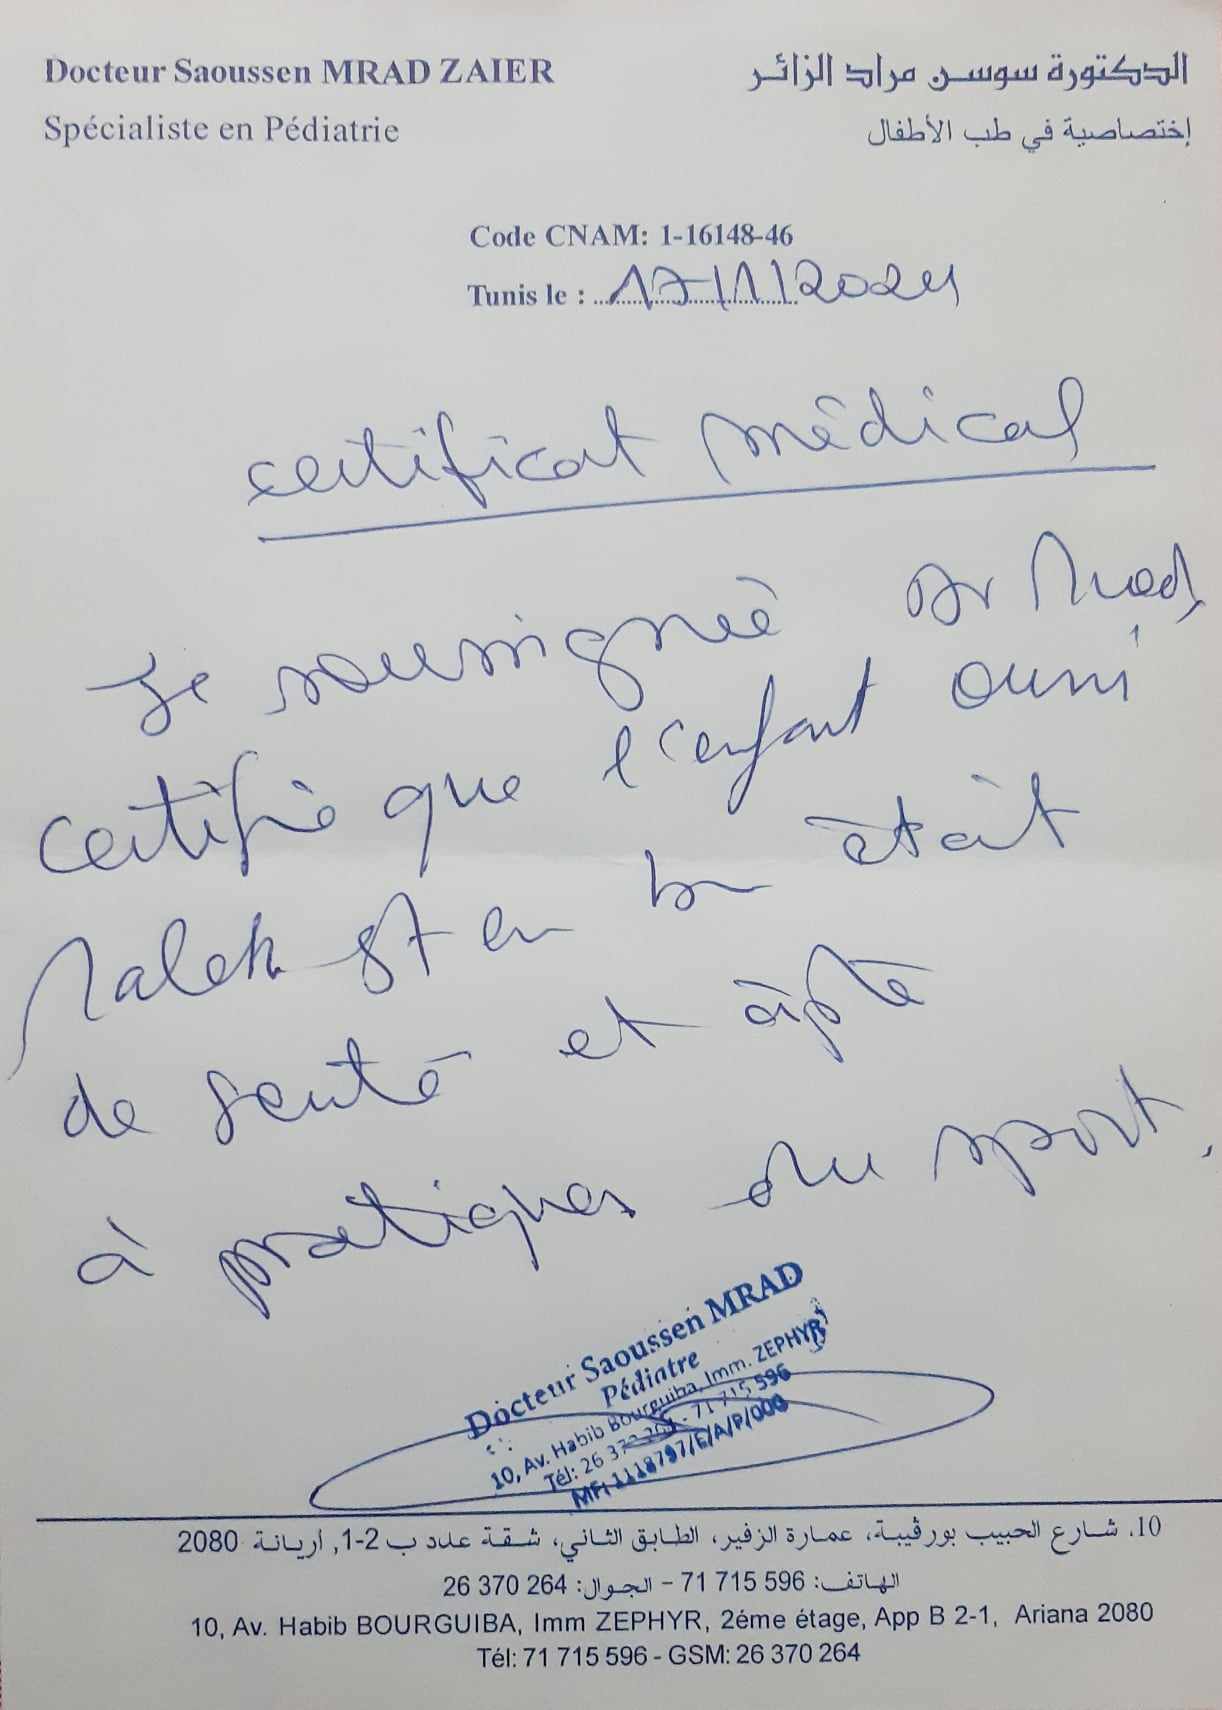 Docteur Saoussen MRAD ZAIER
الدكتورة سوسن مراد الزائر
Spécialiste en Pédiatrie
إختصاصية في طب الأطفال
Code CNAM: 1-16148-46
Tunis le : 17/1/2024
certificat médical
Je soussigné Dr Mrad,
certifie que l'enfant ouni
Malek est en bon était
de santé et apte
à pratiquer du sport.
Docteur Saoussen MRAD
Pédiatre
10, Av. Habib Bourguiba, Imm. ZEPHYR
Tél: 26 370 264 - 71 715 596
MF: 1118797/E/A/P/000
10. شارع الحبيب بورڤيبة، عمارة الزفير، الطابق الثاني، شقة عدد ب 2-1, أريانة 2080
الهاتف: 596 715 71 - الجوال: 264 370 26
10, Av. Habib BOURGUIBA, Imm ZEPHYR, 2éme étage, App B 2-1, Ariana 2080
Tél: 71 715 596 - GSM: 26 370 264